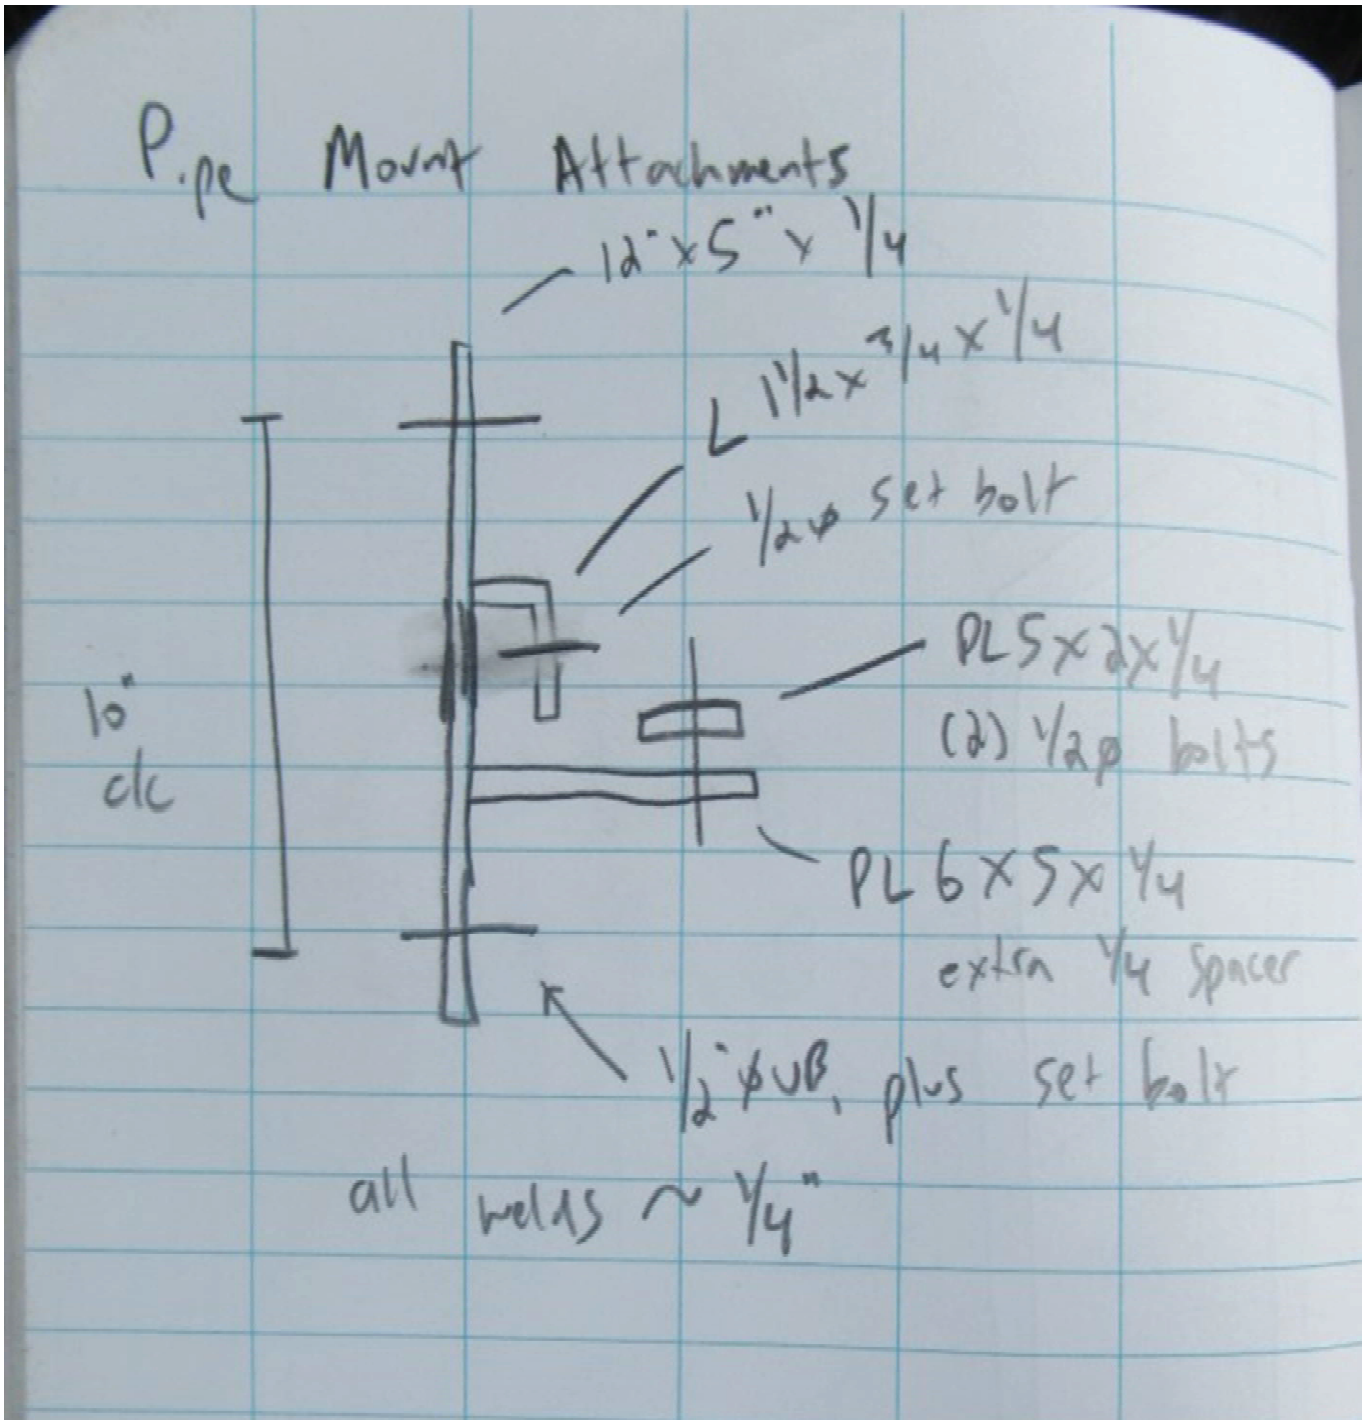 Pipe Mount Attachments
12" x 5" x 1/4
L 1 1/2 x 3/4 x 1/4
1/2 ø set bolt
PL 5 x 2 x 1/4
(2) 1/2 ø bolts
10"
c/c
PL 6 x 5 x 1/4
extra 1/4 spacer
1/2" ø UB, plus set bolt
all welds ~ 1/4"